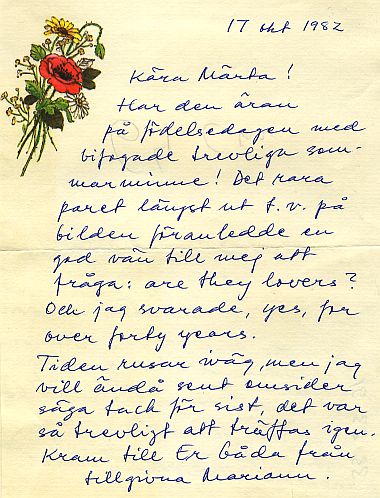 17 okt 1982
Kära Märta!
Har den äran
på födelsedagen med
bifogade trevliga som-
marminne! Det rara
paret längst ut t.v. på
bilden föranledde en
god vän till mej att
fråga: are they lovers?
Och jag svarade, yes, for
over forty years.
Tiden rusar iväg, men jag
vill ändå sent omsider
säga tack för sist, det var
så trevligt att träffas igen.
Kram till Er båda från
tillgivna Mariann.